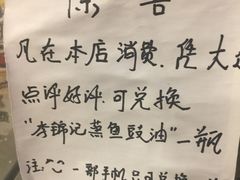 告
凡在本店消费.凭大
点评好评.可兑换
"李锦记蒸鱼豉油"一瓶
注:一部手机只可兑换一